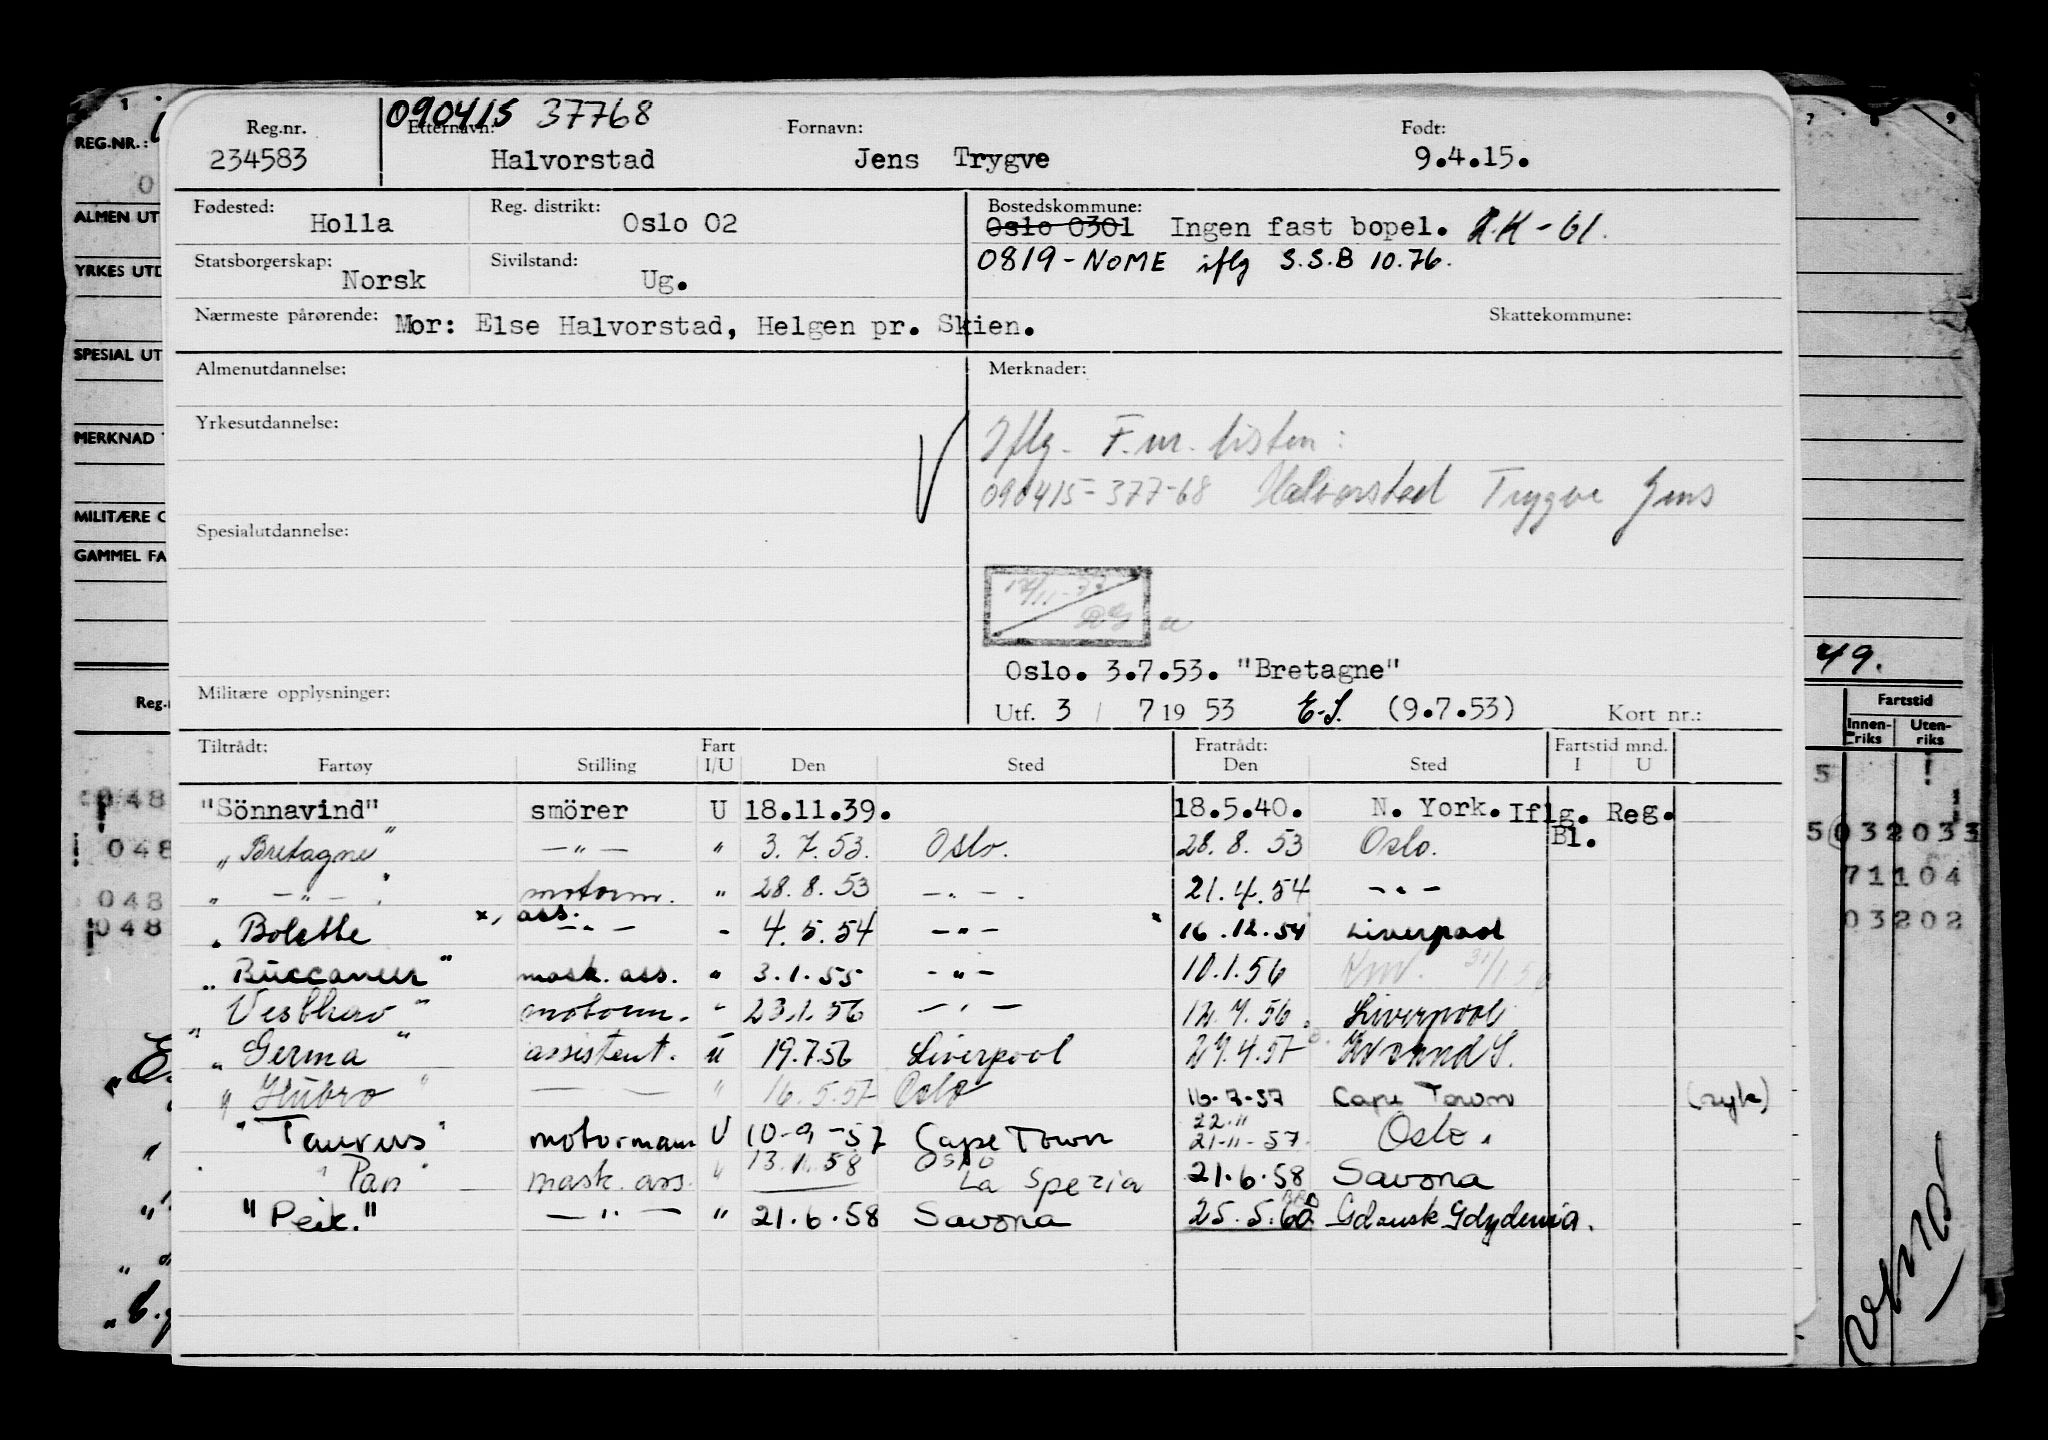 090415 37768
Reg.nr. Etternavn: Fornavn: Født:
234583 Halvorstad Jens Trygve 9.4.15.
Fødested: Holla Reg. distrikt: Oslo 02 Bostedskommune: Oslo 0301 Ingen fast bopel. R.K-61.
0819-NOME iflg S.S.B 10.76.
Statsborgerskap: Norsk Sivilstand: Ug.
Nærmeste pårørende: Mor: Else Halvorstad, Helgen pr. Skien. Skattekommune:
Almenutdannelse: Merknader:
Yrkesutdannelse: Iflg. F.nr. listen:
090415-377-68 Halvorstad Trygve Jens
Spesialutdannelse:
Oslo. 3.7.53. "Bretagne"
Militære opplysninger: Utf. 3 / 7 19 53 E.S. (9.7.53) Kort nr.:
Tiltrådt: Fart Fratrådt: Fartstid mnd.
Fartøy Stilling I/U Den Sted Den Sted I U
"Sönnavind" smörer U 18.11.39. 18.5.40. N. York. Iflg. Reg.
Bl.
"Bretagne" —"— " 3.7.53. Oslo. 28.8.53 Oslo.
" —"— " motorm. " 28.8.53 —"— 21.4.54 —"—
"Bolette x, ass. —"— " 4.5.54 —"— x 16.12.54 Liverpool
"Buccaneer" mask. ass. " 3.1.55 —"— 10.1.56
"Vesthav" motorm. " 23.1.56 —"— 12.7.56. Liverpool
"Germa" assistent. U 19.7.56 Liverpool 29.4.57 Kr.sand S.
"Hubro" — — " 16.5.57 Oslo 16-7-57 Cape Town (syk)
22.11
"Taurus" motormann U 10-9-57 Cape Town 21-11-57. Oslo.
13.1.58 Oslo
"Pan" mask. ass. " La Spezia 21.6.58 Savona
"Peik." —"— " 21.6.58 Savona 25.5.60 Gdansk Gdydenia.
REG.NR.:
ALMEN UT
YRKES UTD
SPESIAL UT
MERKNAD
MILITÆRE
GAMMEL FA
Reg.
048
048
048
048
49.
Fartstid
Innen-riks Uten-riks
5
5 032033
71104
03202